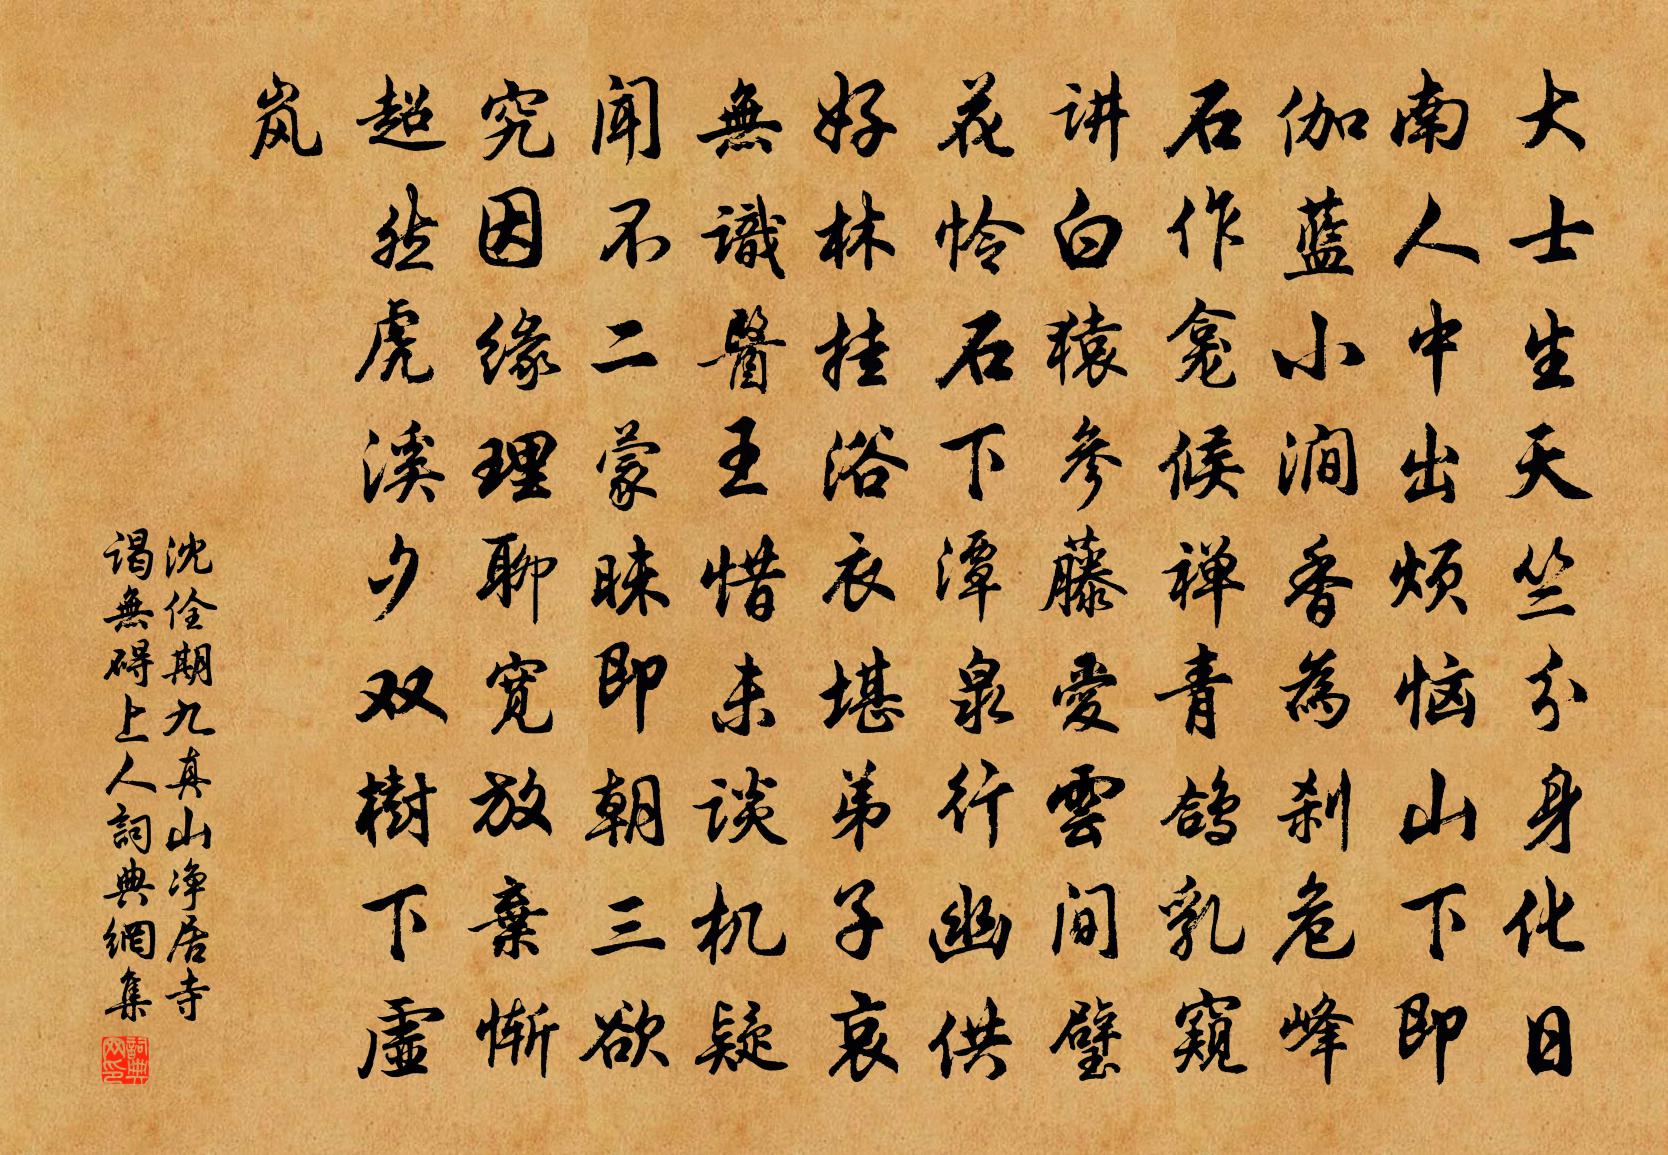 大士生天竺分身化日
南人中出烦恼山下即
伽藍小涧香為刹危峰
石作龛候禅青鸽乳窺
讲白猿参藤愛雲间壁
花怜石下潭泉行幽供
好林挂浴衣堪弟子哀
無識醫王惜未谈机疑
闻不二蒙昧即朝三欲
究因缘理聊宽放棄惭
超然虎溪夕双樹下虛
岚
沈佺期九真山净居寺
谒無碍上人詞典網集
詞典网印